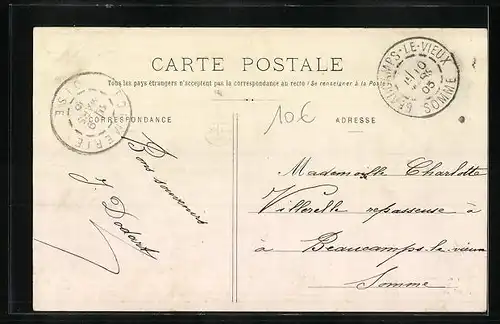 CARTE POSTALE
Tous les pays étrangers n'acceptent pas la correspondance au recto (Se renseigner à la Poste)
CORRESPONDANCE
ADRESSE
10€
BEAUCAMPS-LE-VIEUX
05
SOMME
OISE
Bons souvenirs
J. Dodart
Mademoiselle Charlotte
Villerelle repasseuse à
à Beaucamps-le-vieux
Somme